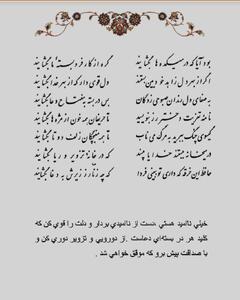 بود آیا که در میکده‌ها بگشایند گره از کار فروبسته ما بگشایند
اگر از بهر دل زاهد خودبین بستند دل قوی دار که از بهر خدا بگشایند
به صفای دل رندان صبوحی زدگان بس در بسته به مفتاح دعا بگشایند
نامه تعزیت دختر رز بنویسید تا حریفان همه خون از مژه‌ها بگشایند
گیسوی چنگ ببرید به مرگ می ناب تا همه مغبچگان زلف دوتا بگشایند
در میخانه ببستند خدایا مپسند که در خانه تزویر و ریا بگشایند
حافظ این خرقه که داری تو ببینی فردا که چه زنار ز زیرش به دغا بگشایند
خیلی ناامید هستی .دست از ناامیدی بردار و دلت را قوی کن که
کلید هر در بسته‌ای دعاست .از دورویی و تزویر دوری کن و
با صداقت پیش برو که موفق خواهی شد .